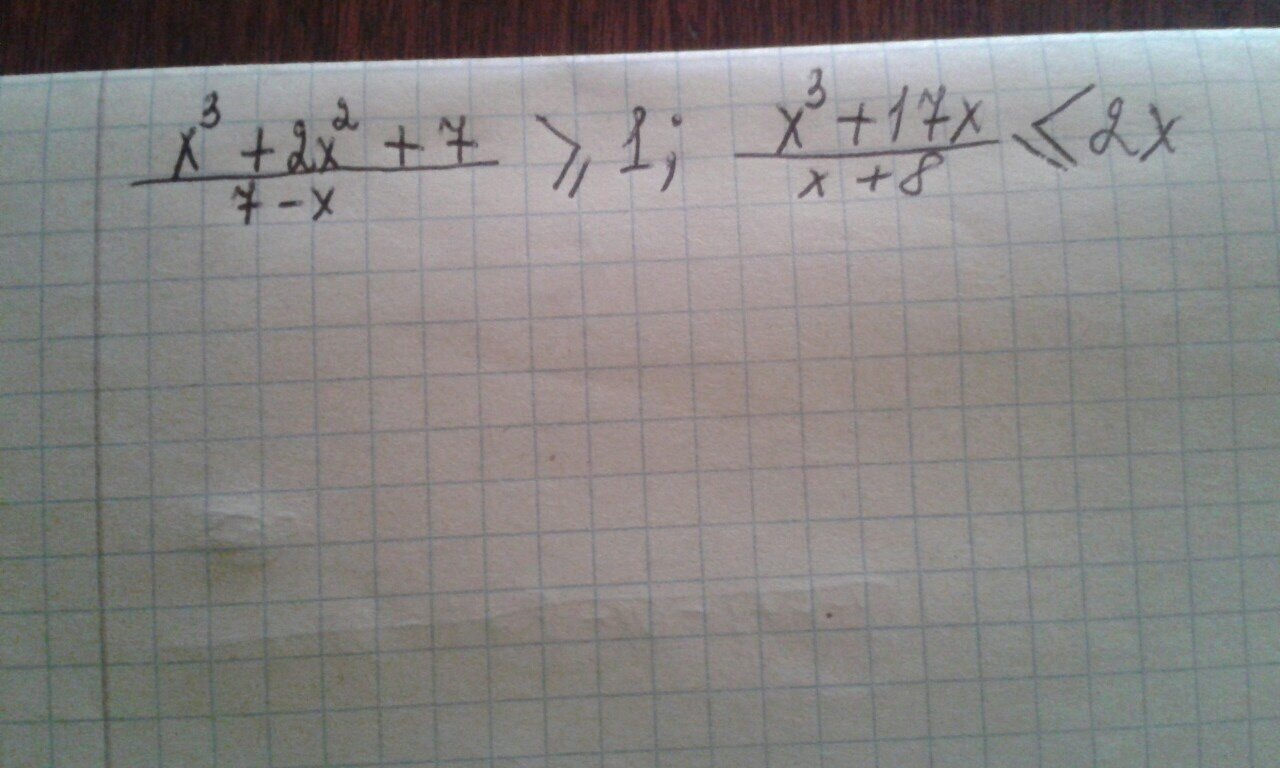 (x³ + 2x² + 7)/(7 - x) ⩾ 1; (x³ + 17x)/(x + 8) ⩽ 2x